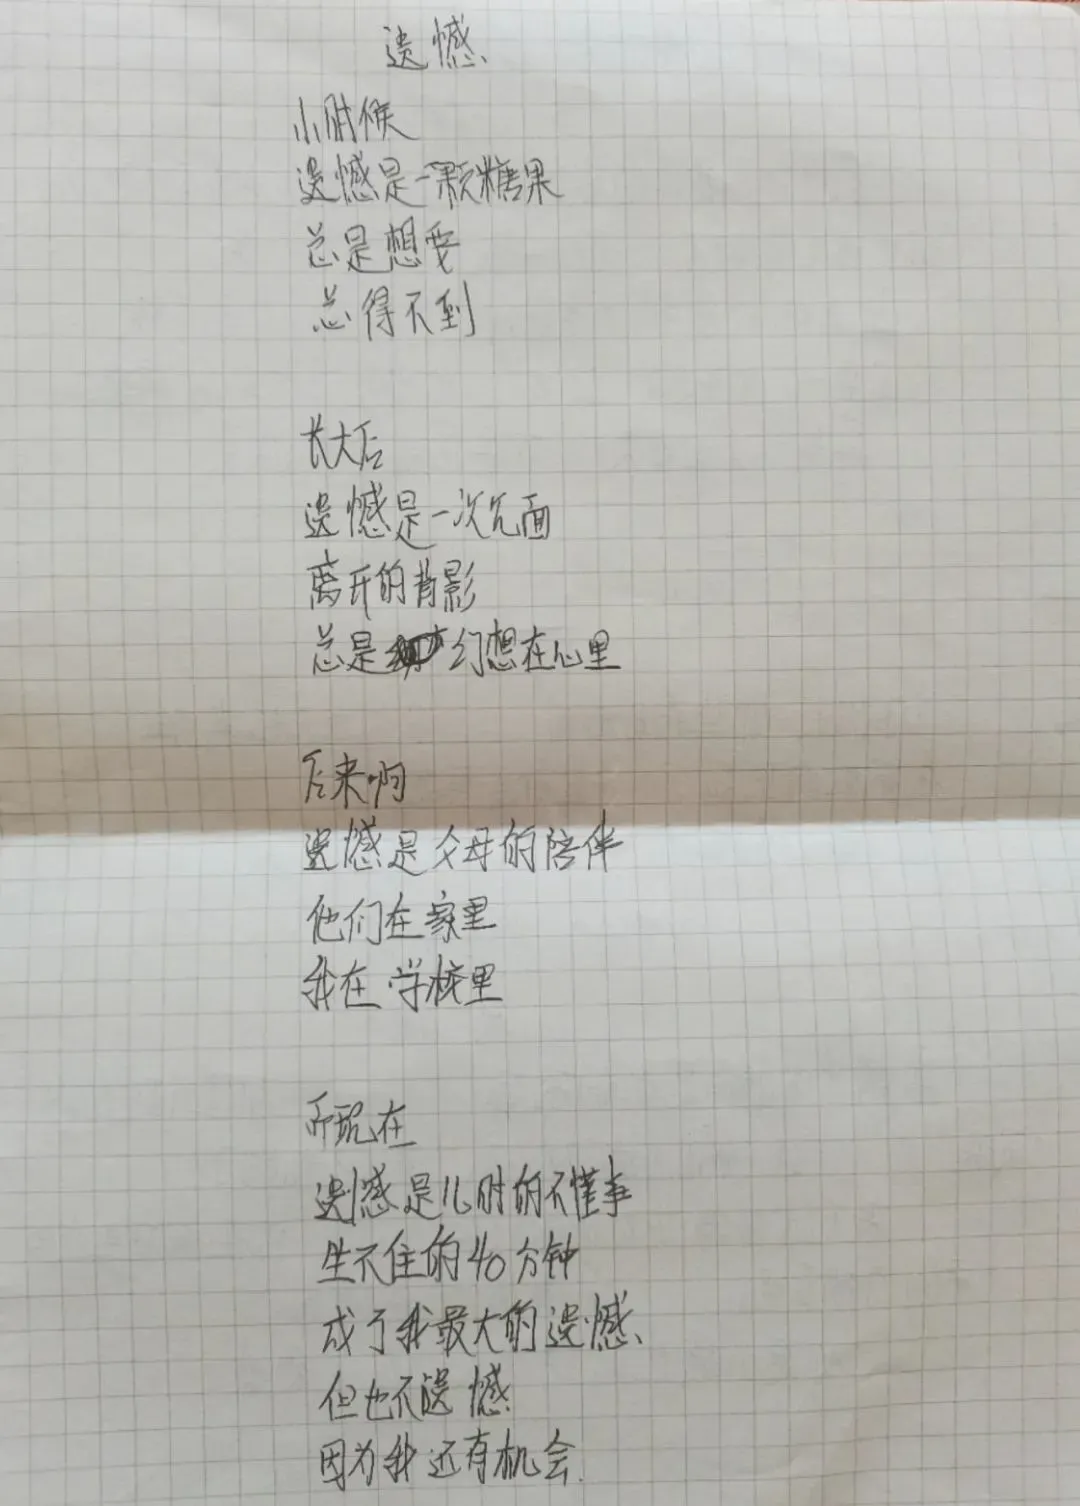 遗憾
小时候
遗憾是一颗糖果
总是想要
总得不到
长大后
遗憾是一次见面
离开的背影
总是幻想在心里
后来啊
遗憾是父母的陪伴
他们在家里
我在学校里
而现在
遗憾是儿时的不懂事
坐不住的40分钟
成了我最大的遗憾、
但也不遗憾
因为我还有机会.